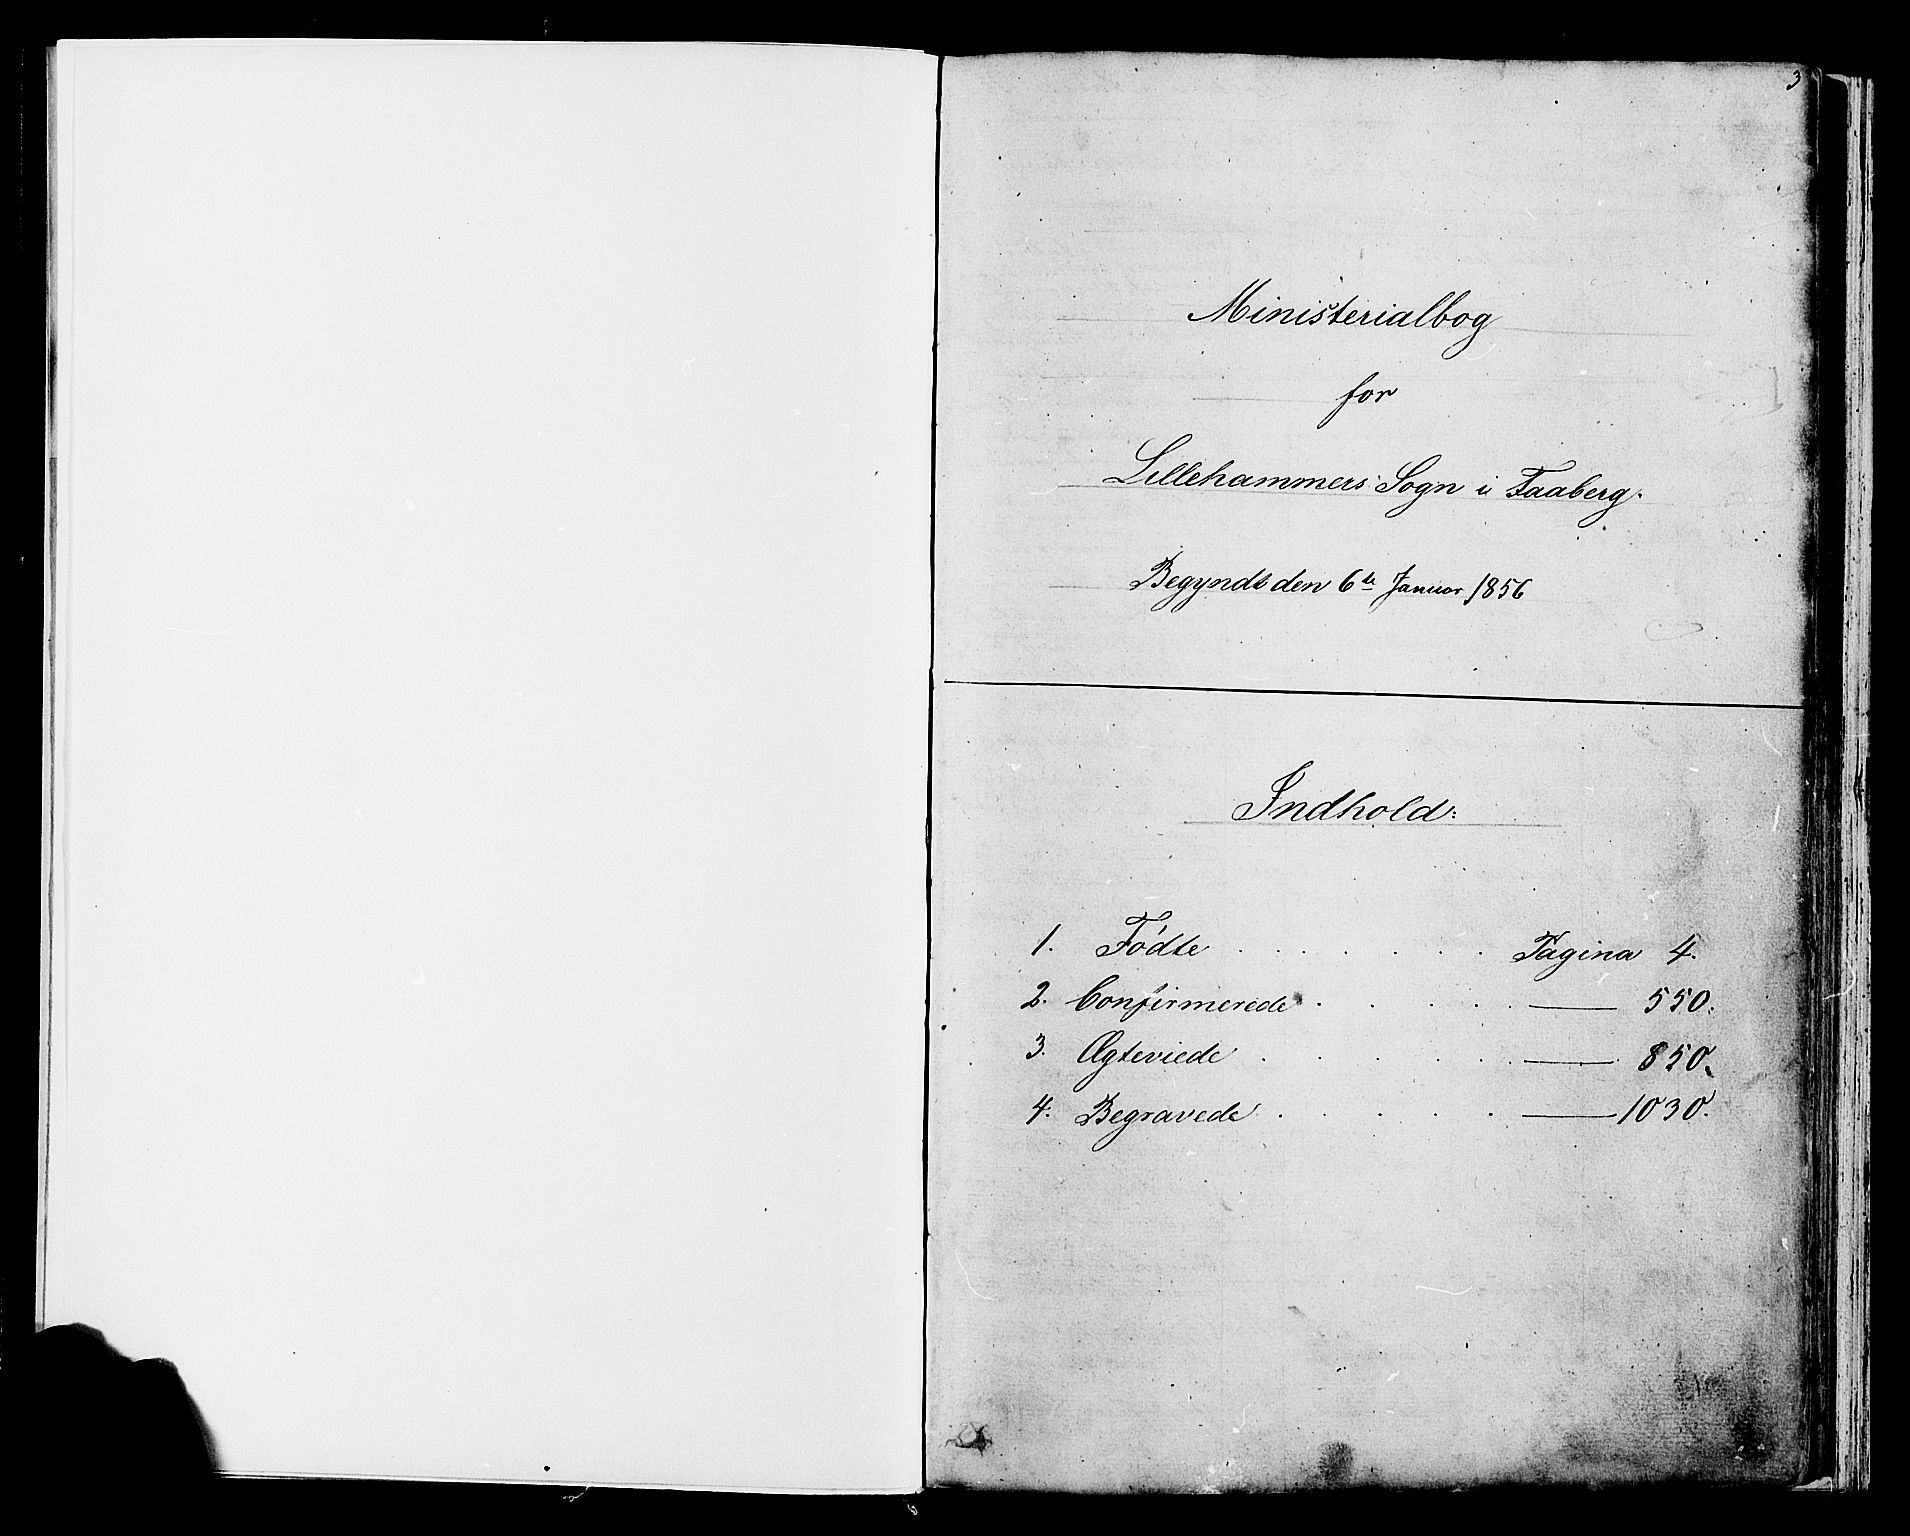 3
Ministerialbog
for
Lillehammers Sogn i Faaberg.
Begyndt den 6te Januar 1856
Indhold:
1. Fødte . . . . . . Pagina 4.
2. Confirmerede . . . . — 550.
3. Ægteviede . . . . — 850.
4. Begravede . . . . — 1030.